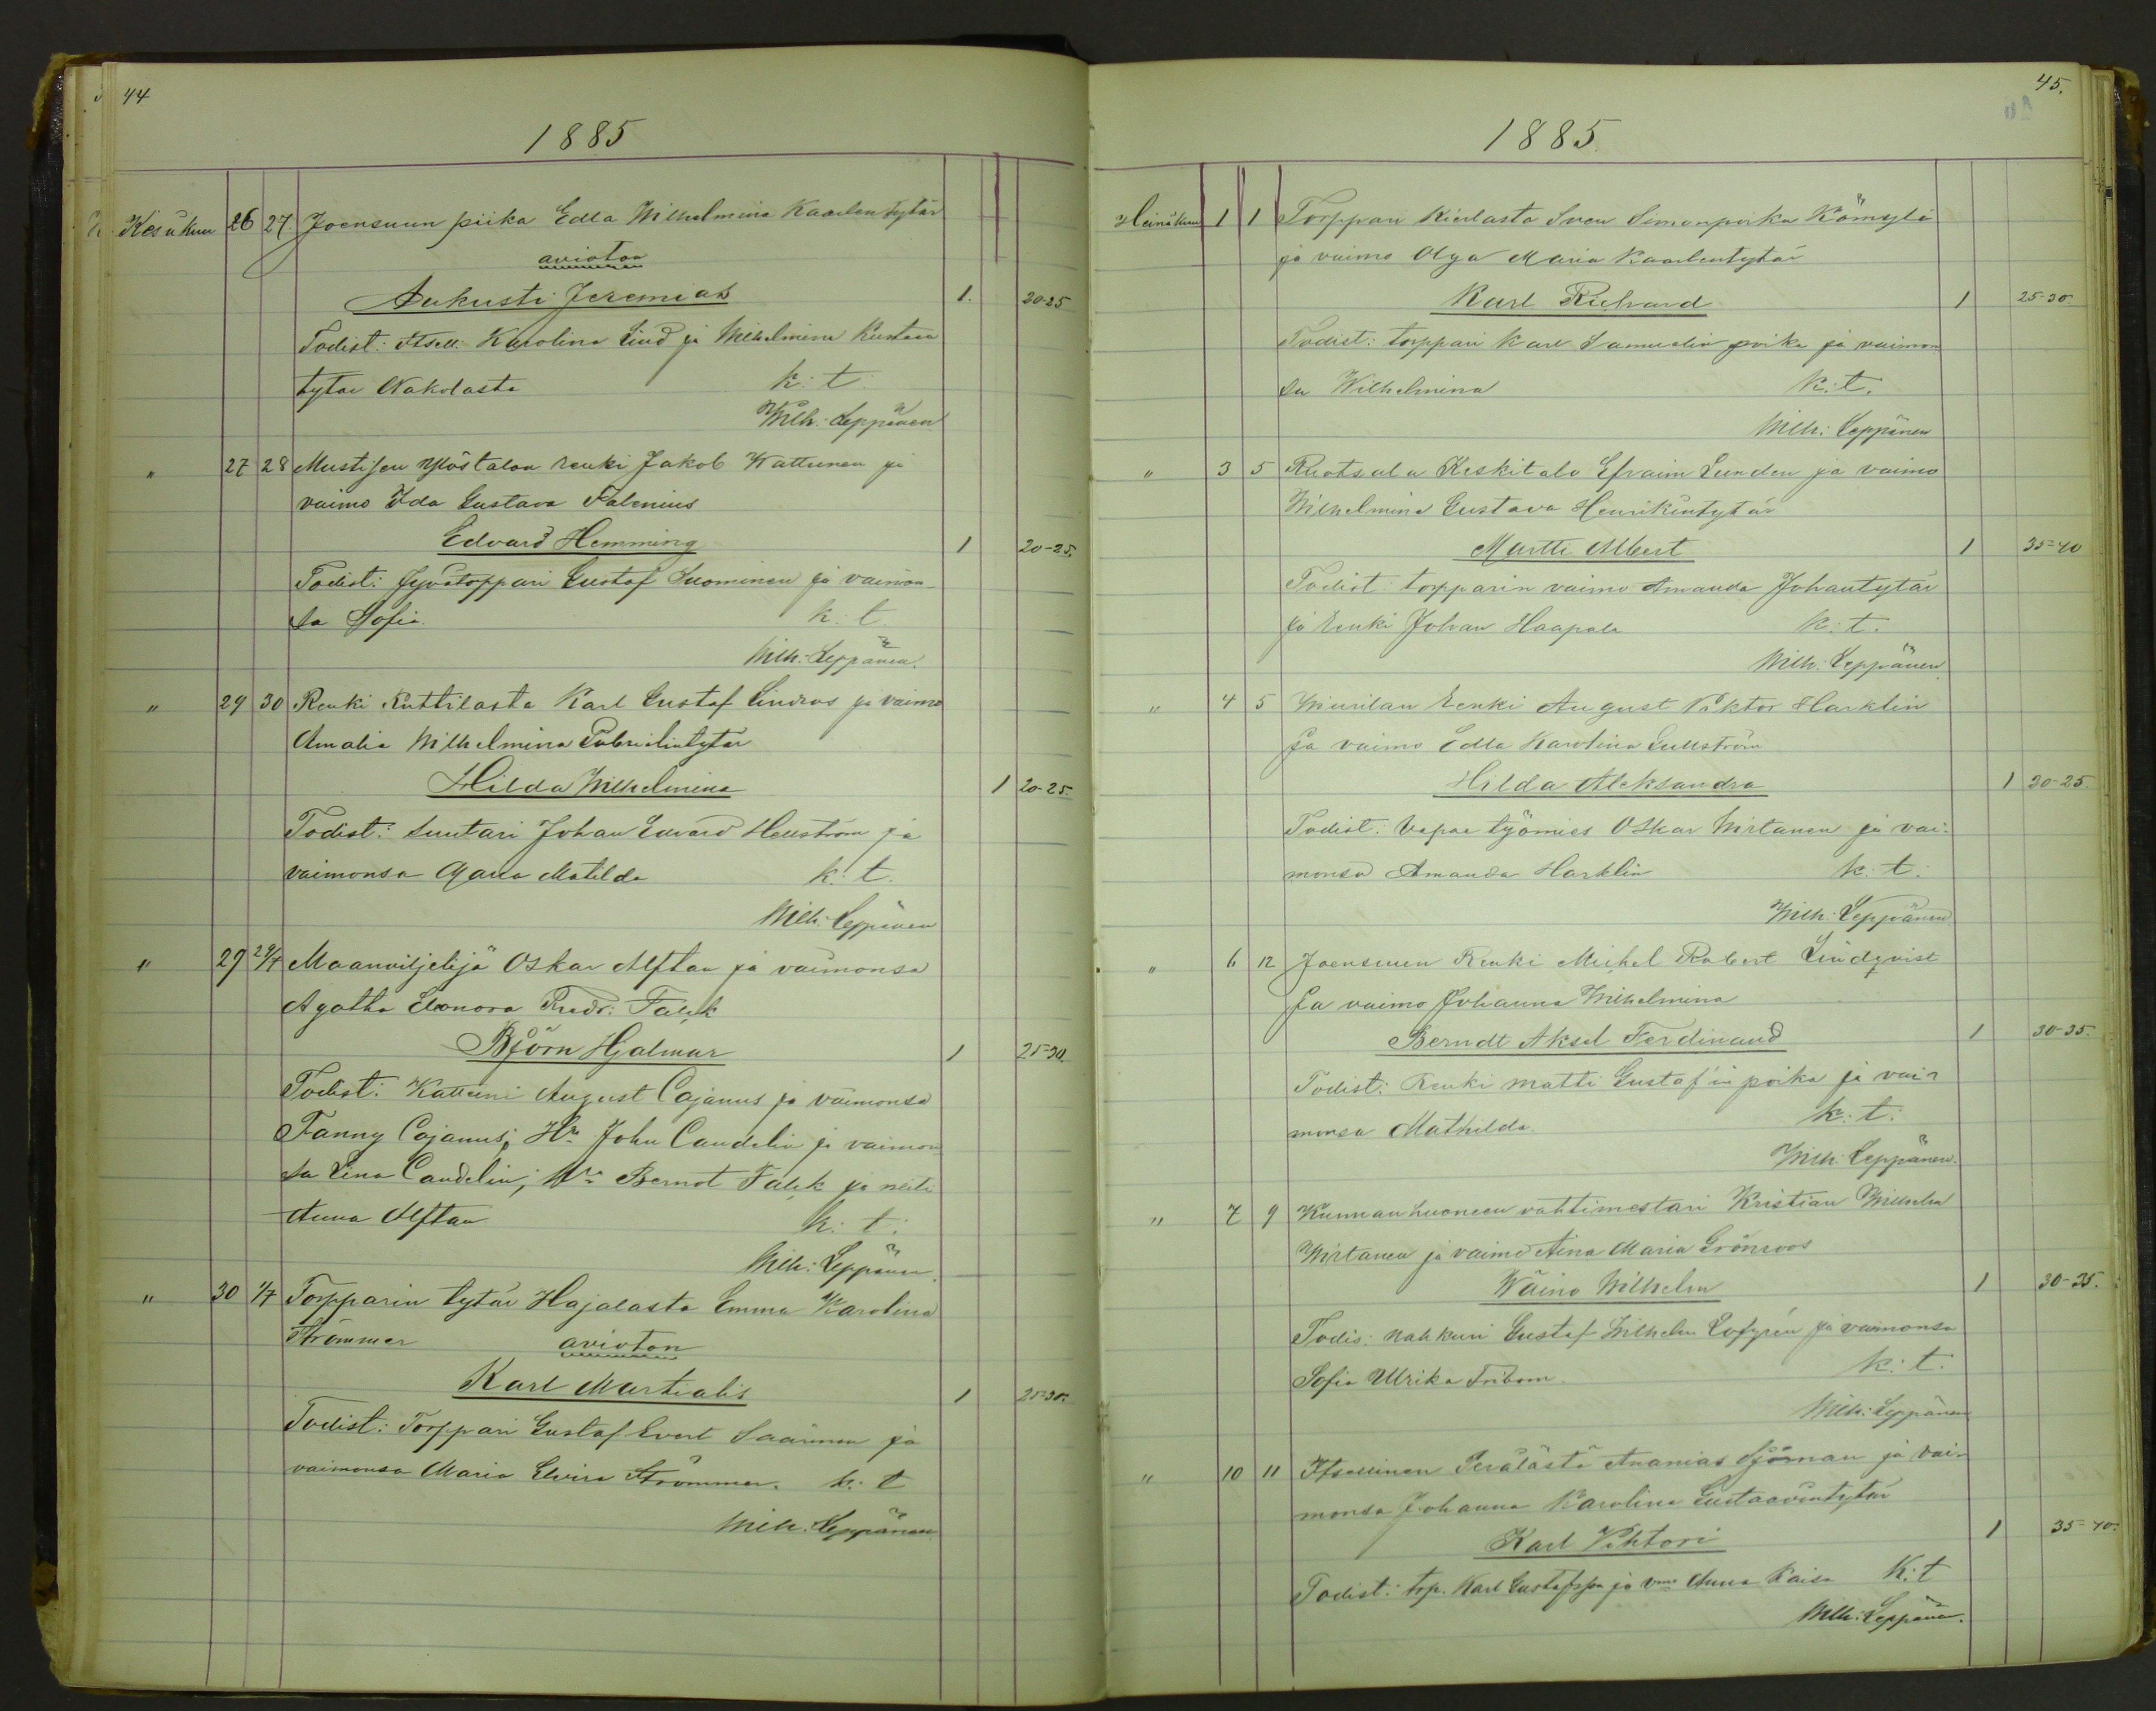 44
1885
Kesäkuu 26 27. Joensuun piika Edla Wilhelmina Kaarlentytär
avioton
Aukusti Jeremias 1. 20-25
Todist: Itsell. Karolina Lind ja Wilhelmina Kustaan
tytär Nakolasta k: t.
Wilh: Leppänen
" 27 28 Mustisen Ylöstalon renki Jakob Kattunen ja
vaimo Ida Gustava Falenius
Edvard Hemming 1 20-25.
Todist: Jyvätorppari Gustaf Suominen ja vaimon-
sa Sofia. k: t.
Wilh: Leppänen.
" 29 30 Renki Kuttilasta Karl Gustaf Lindros ja vaimo
Amalia Wilhelmina Gabrielintytär
Hilda Wilhelmina 1 20-25.
Todist: Suutari Johan Edvard Hellström ja
vaimonsa Maria Matilda k: t.
Wilh: Leppänen
" 29 29/7 Maanviljelijä Oskar Alftan ja vaimonsa
Agatha Eleonora Falck
Björn Hjalmar 1 25-30
Todist: August Cajanus ja vaimonsa
Fanny Cajanus; Hra John Candelin ja vaimon
sa Lina Candelin; Hra Berndt Falck ja neiti
Anna Alftan k: t:
Wilh: Leppänen.
" 30 1/7 Torpparin tytär Hajalasta Emma Karolina
Strömmer avioton
Karl Martialis 1 25-30.
Todist: Torppari Gustaf Evert Saarinen ja
vaimonsa Maria Elvira Strömmer. k: t
Wilh: Leppänen
45.
1885.
Heinäkuu 1 1 Torppari Kierlasta Sven Simonpoika Kömylä
ja vaimo Olga Maria Kaarlentytär
Karl Richard 1 25-30.
Todist: torppari Karl Samuelin poika ja vaimon
sa Wilhelmina k: t.
Wilh: Leppänen
" 3 5 Ruotsala Keskitalo Efraim Lunden ja vaimo
Wilhelmina Gustava Henrikintytär
Martti Albert 1 35-40
Todist: torpparin vaimo Amanda Johantytär
ja renki Johan Haapala k: t.
Wilh: Leppänen.
" 4 5 renki August Viktor Harklin
ja vaimo Edla Karolina Gullström
Hilda Aleksandra 1 20-25.
Todist: Vapaa työmies Oskar Wirtanen ja vai-
monsa Amanda Harklin k: t.
Wilh: Leppänen
" 6 12 Joensuun Renki Mickel Robert Lindqvist
ja vaimo Johanna Wilhelmina
Berndt Aksel Ferdinand 1 30-35.
Todist: Renki Matti Gustaf'in poika ja vai-
monsa Mathilda. k: t:
Wilh: Leppänen.
" 7 9 Kunnanhuoneen vahtimestari Kristian Wilhelm
Wirtanen ja vaimo Aina Maria Grönroos
Wäinö Wilhelm 1 30-35.
Todis: nahkuri Gustaf Wilhelm Lofgrén ja vaimonsa
Sofia Ulrika Fribom. k: t.
Wilh: Leppänen
" 10 11 Itsellinen Perälästä Ananias Sjöman ja vai-
monsa Johanna Karolina Gustaavintytär
Karl Vihtori 1 35-40.
Todist: trp. Karl Gustafsson ja vmo Anna Kaisa K: t
Wilh: Leppänen.